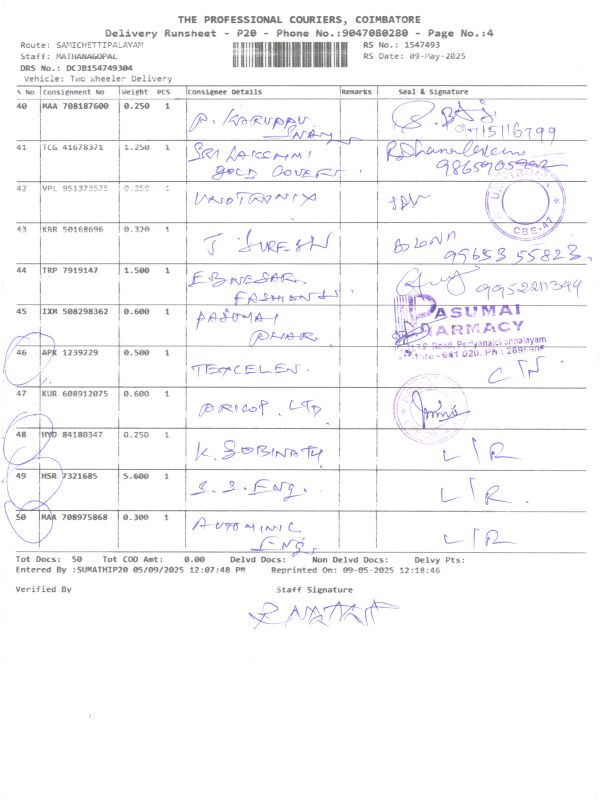 THE PROFESSIONAL COURIERS, COIMBATORE
Delivery Runsheet - P20 - Phone No.:9047080280 - Page No.:4
Route: SAMICHETTIPALAYAM RS No.: 1547493
Staff: MATHANAGOPAL RS Date: 09-May-2025
DRS No.: DCJB154749304
Vehicle: Two Wheeler Delivery
S No Consignment No Weight PCS Consignee Details Remarks Seal & Signature
40 MAA 708187600 0.250 1 P. KARUPPU
9715116799
41 TCG 41678371 1.250 1 SRI LAKSHMI
GOLD COVERS
9865905992
42 VPL 951373575 0.250 1 UNOTRONIX
CBE-47
43 KRR 50168696 0.320 1 J SURESH
99653 55823
44 TRP 7919147 1.500 1 EBNESAR
FASHIONS 9952211344
45 IXM 508298362 0.600 1 PASUMAI PASUMAI
PHAR PHARMACY
46 APK 1239229 0.500 1 TEXCELEN.
47 KUR 608912075 0.600 1 PRICOL LTD
48 HYD 84180347 0.250 1 K. GOBINATH L/R
49 HSR 7321685 5.600 1 S. S. Eng. L/R
50 MAA 708975868 0.300 1 AUTOMINIC L/R
Eng.
Tot Docs: 50 Tot COD Amt: 0.00 Delvd Docs: Non Delvd Docs: Delvy Pts:
Entered By :SUMATHIP20 05/09/2025 12:07:48 PM Reprinted On: 09-05-2025 12:18:46
Verified By Staff Signature